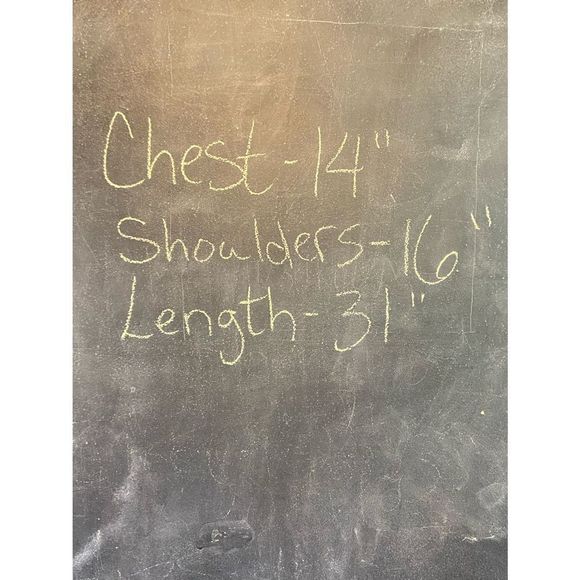 Chest-14"
Shoulders-16"
Length-31"